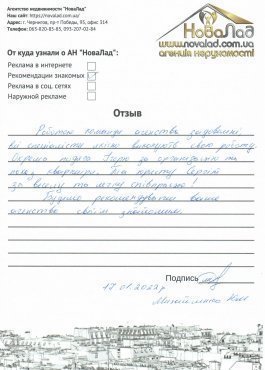 Агентство недвижимости "НоваЛад"
Наш сайт: https://novalad.com.ua/
Адрес: г. Чернигов, пр-т Победы, 95, офис 314
Телефон: 063-820-83-83, 093-207-02-84
НоваЛад
www.novalad.com.ua
агенція нерухомості
От куда узнали о АН "НоваЛад":
Реклама в интернете
Рекомендации знакомых
Реклама в соц. сетях
Наружной рекламе
Отзыв
Роботою команди агенства задоволені,
всі спеціалісти якісно виконують свою роботу.
Окрема подяга Ігорю за організацію та
показ квартири. Та юристу Сергію
за веселу та легку співпрацю!
Будемо рекомендувати ваше
агенство своїм знайомим.
Подпись
17.01.2022р